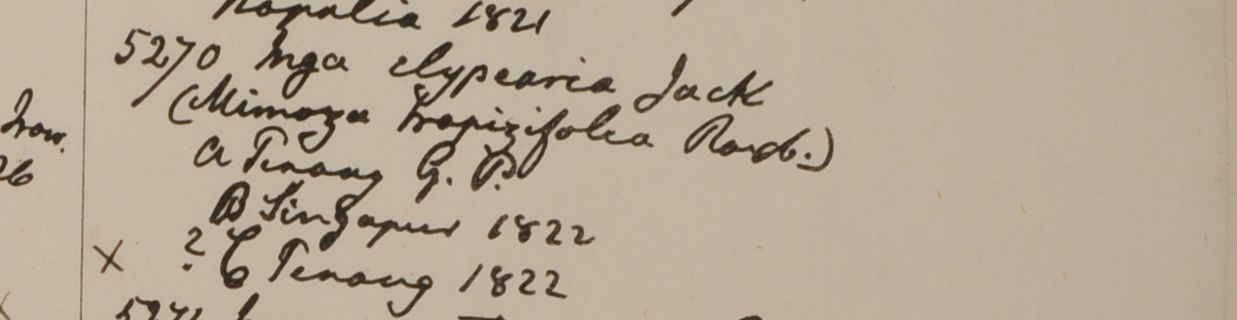 Napalia 1821
5270 Inga clypearia Jack
(Mimoza trapizifolia Roxb.)
a Penang G. P.
B Singapur 1822
x ? C Penang 1822
5271